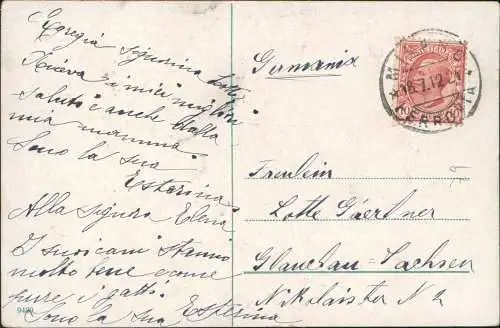 Egregia signorina Lotte
Riceva i miei migliori
saluti e anche dalla
mia mamma.
Sono la sua
Esterina
Alla signora Elena
I suoi cani stanno
molto bene e come
pure i gatti.
Sono la sua Esterina
9489
Germania
16.7.12
FERROVIA
Freulein
Lotte Gäertner
Glauchau-Sachsen
Nikolaistar N 2